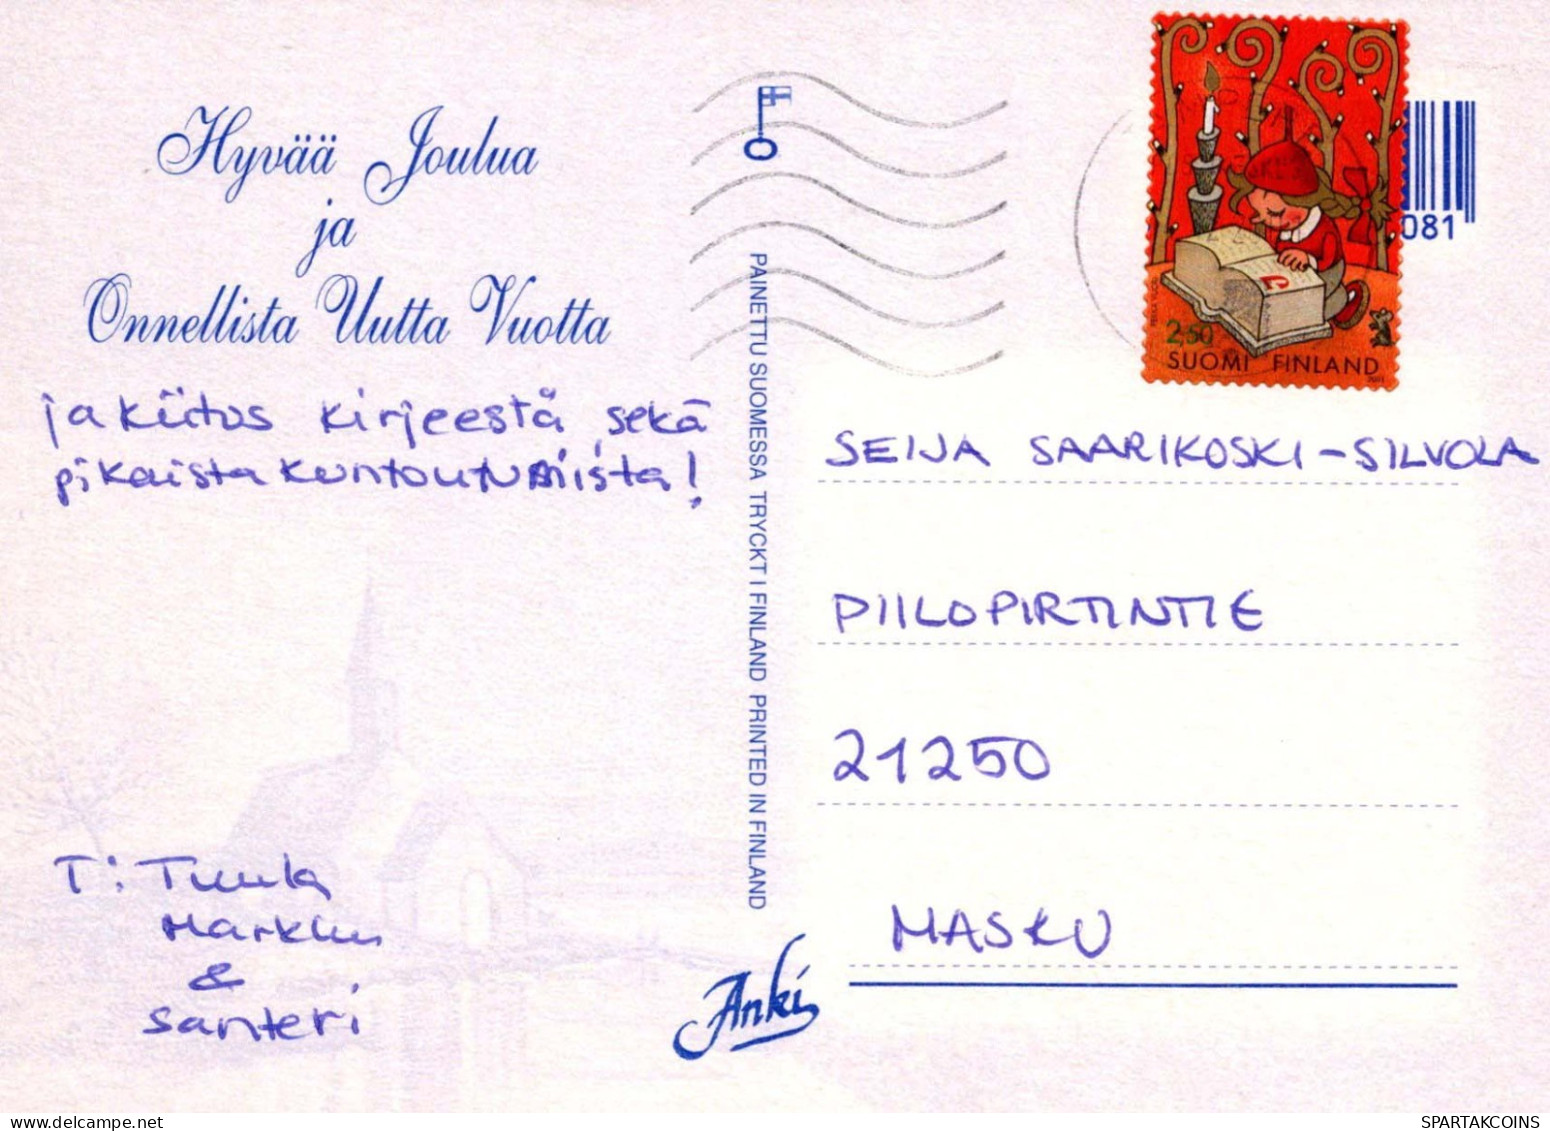 Hyvää Joulua
ja
Onnellista Uutta Vuotta
ja kiitos kirjeestä sekä
pikaista kuntoutumista!
T: Tuula
Markku
&
Santeri
PAINETTU SUOMESSA TRYCKT I FINLAND PRINTED IN FINLAND
Anki
2,50
SUOMI FINLAND
2001
081
SEIJA SAARIKOSKI-SILVOLA
PIILOPIRTINTIE
21250
MASKU
SPARTAKCOINS